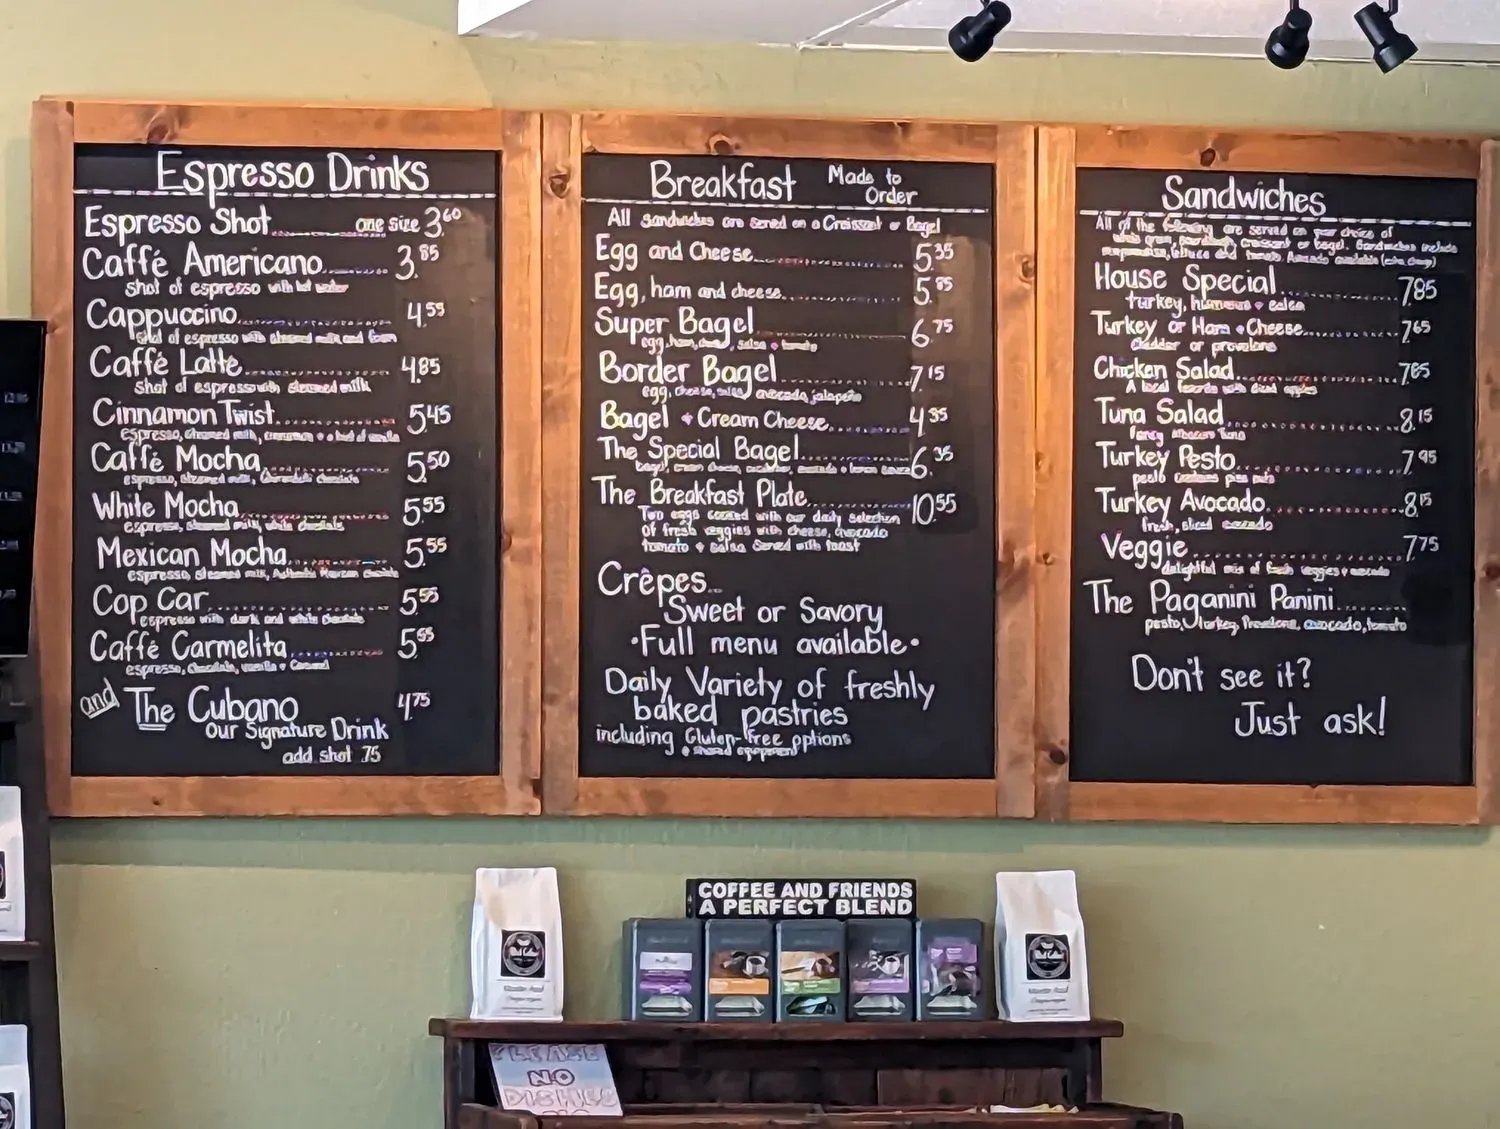 Espresso Drinks
Espresso Shot one size 3.60
Caffé Americano 3.85
shot of espresso with hot water
Cappuccino 4.55
shot of espresso with steamed milk and foam
Caffé Latte 4.85
shot of espresso with steamed milk
Cinnamon Twist 5.45
espresso, steamed milk, cinnamon + a hint of vanilla
Caffé Mocha 5.50
espresso, steamed milk, Ghirardelli chocolate
White Mocha 5.55
espresso, steamed milk, white chocolate
Mexican Mocha 5.55
espresso, steamed milk, Authentic Mexican chocolate
Cop Car 5.55
espresso with dark and white chocolate
Caffé Carmelita 5.55
espresso, chocolate, vanilla + Caramel
and The Cubano 4.75
Our Signature Drink
add shot 75
Breakfast Made to Order
All sandwiches are served on a Croissant or Bagel
Egg and Cheese 5.35
Egg, ham and cheese 5.85
Super Bagel 6.75
egg, ham, salsa + tomato
Border Bagel 7.15
egg, cheese, salsa, avocado, jalapeño
Bagel + Cream Cheese 4.35
The Special Bagel 6.35
bagel, cream cheese, cucumber, avocado + lemon
The Breakfast Plate 10.55
Two eggs cooked with our daily selection
of fresh veggies with cheese, avocado
tomato + salsa Served with toast
Crêpes
Sweet or Savory
•Full menu available•
Daily Variety of freshly
baked pastries
including Gluten-free options
shared equipment
Sandwiches
All of the following are served on your choice of
whole grain, sourdough, croissant or bagel. Sandwiches include
mayonnaise, lettuce and tomato. Avocado available (extra charge)
House Special 7.85
turkey, hummus + salsa
Turkey or Ham + Cheese 7.65
cheddar or provolone
Chicken Salad 7.85
A local favorite with diced apples
Tuna Salad 8.15
fancy Albacore Tuna
Turkey Pesto 7.95
pesto contains pine nuts
Turkey Avocado 8.15
fresh, sliced avocado
Veggie 7.75
delightful mix of fresh veggies + avocado
The Paganini Panini
pesto, turkey, Provolone, avocado, tomato
Don't see it?
Just ask!
COFFEE AND FRIENDS
A PERFECT BLEND
PLEASE
NO
DISHES